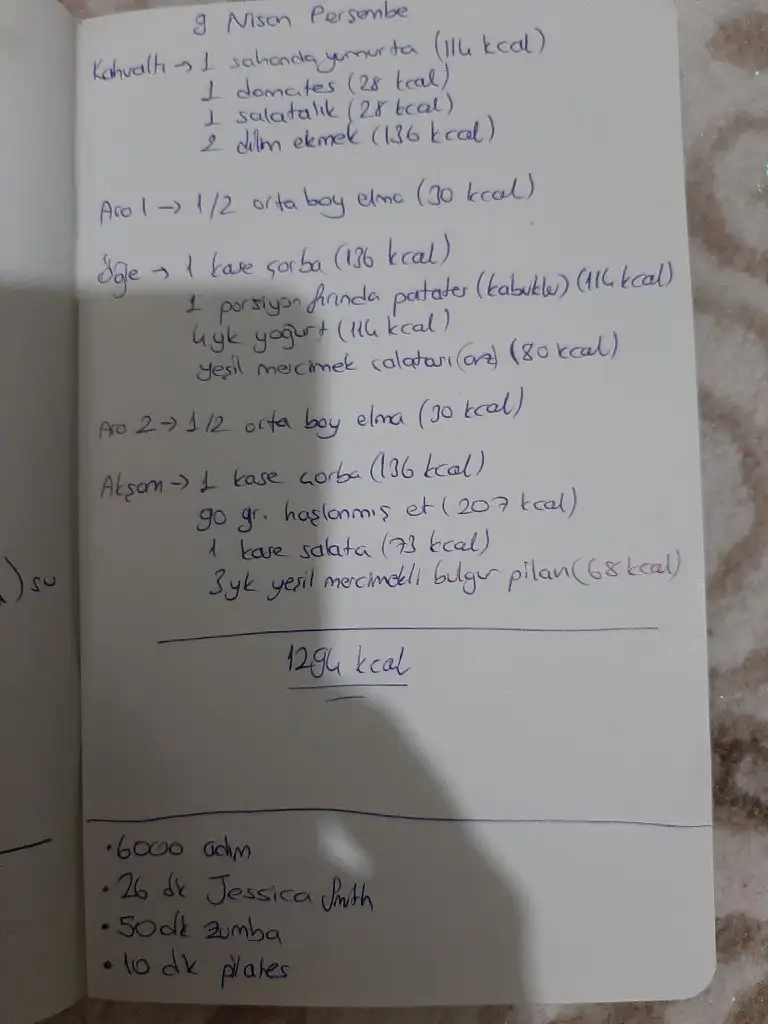 9 Nisan Perşembe
Kahvaltı → 1 sahanda yumurta (114 kcal)
1 domates (28 kcal)
1 salatalık (28 kcal)
2 dilim ekmek (136 kcal)
Ara 1 → 1/2 orta boy elma (30 kcal)
Öğle → 1 kase çorba (136 kcal)
1 porsiyon fırında patates (kabuklu) (114 kcal)
4yk yoğurt (114 kcal)
yeşil mercimek salatası (az) (80 kcal)
Ara 2 → 1/2 orta boy elma (30 kcal)
Akşam → 1 kase çorba (136 kcal)
90 gr. haşlanmış et (207 kcal)
1 kase salata (73 kcal)
3yk yeşil mercimekli bulgur pilavı (68 kcal)
) su
1294 kcal
• 6000 adım
• 26 dk Jessica Smith
• 50 dk zumba
• 10 dk pilates